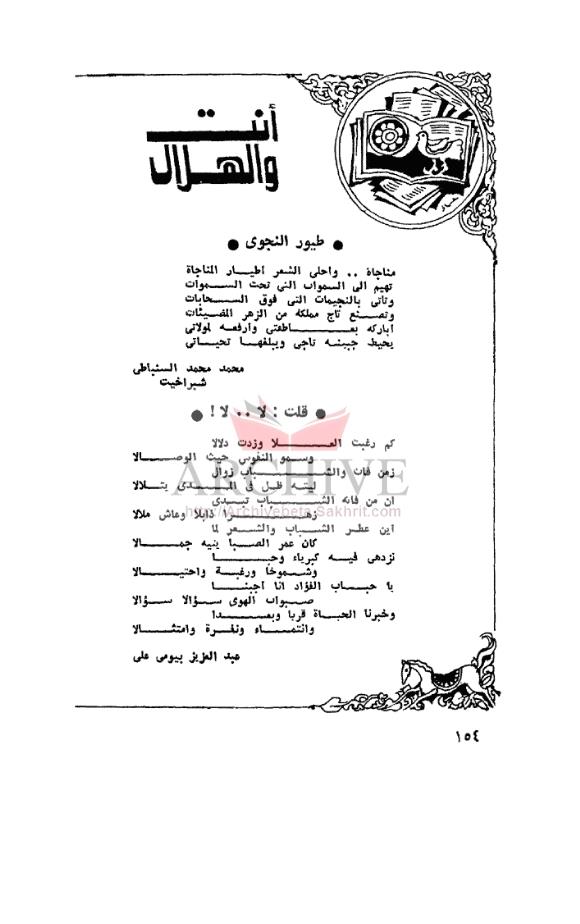 أنت
والهلال
● طيور النجوى ●
مناجاة .. واحلى الشعر أطيار المناجاة
تهيم الى السموات التى تحت السموات
وتأتى بالنجيمات التى فوق السحابات
وتصنع تاج مملكة من الزهر المضيئات
أباركه بعاطفتى وأرفعه لمولاتى
يحيط جبينه تاجى ويبلغها تحياتى
محمد محمد السنباطى
شبراخيت
● قلت : لا .. لا ! ●
كم رغبت العلا وزدت دلالا
وسمو النفوس حيث الوصالا
زمن فات والشباب زوال
ليته ظل فى المدى يتلالا
ان من فاته الشباب تبدى
زهرا ذابلا وعاش ملالا
اين عطر الشباب والشعر لما
كان عمر الصبا ينيه جمالا
نزدهى فيه كبرياء وحبا
وشموخا ورغبة واحتيالا
يا حباب الفؤاد انا أجبنا
صبوات الهوى سؤالا سؤالا
وخبرنا الحياة قربا وبعدا
وانتماء ونفرة وامتثالا
عبد العزيز بيومى على
١٥٤
ARCHIVE
http://Archivebeta.Sakhrit.com